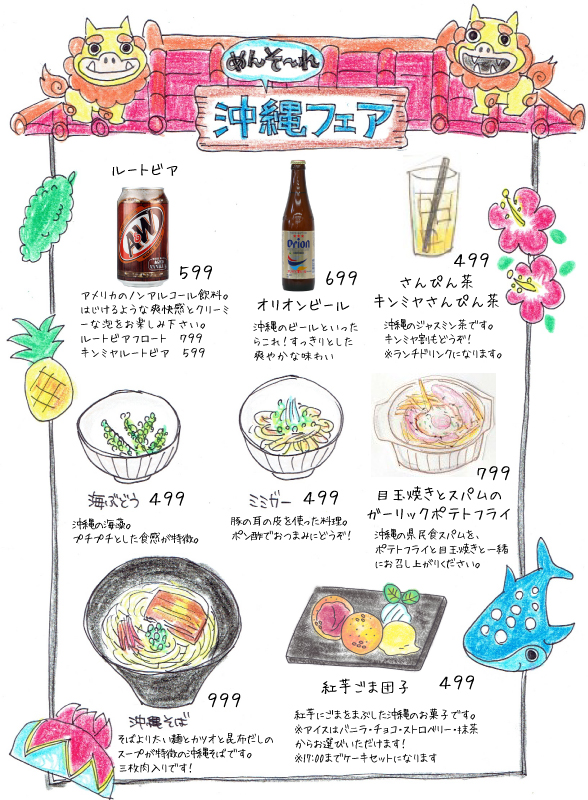 めんそ〜れ
沖縄フェア
ルートビア
A&W
599
アメリカのノンアルコール飲料。
はじけるような爽快感とクリーミ
ーな泡をお楽しみ下さい。
ルートビアフロート 799
キンミヤルートビア 599
Orion
699
オリオンビール
沖縄のビールといった
らこれ！すっきりとした
爽やかな味わい
499
さんぴん茶
キンミヤさんぴん茶
沖縄のジャスミン茶です。
キンミヤ割もどうぞ！
※ランチドリンクになります。
海ぶどう 499
沖縄の海藻。
プチプチとした食感が特徴。
ミミガー 499
豚の耳の皮を使った料理。
ポン酢でおつまみにどうぞ！
799
目玉焼きとスパムの
ガーリックポテトフライ
沖縄の県民食スパムを、
ポテトフライと目玉焼きと一緒
にお召し上がりください。
999
沖縄そば
そばより太い麺とカツオと昆布だしの
スープが特徴の沖縄そばです。
三枚肉入りです！
紅芋ごま団子 499
紅芋にごまをまぶした沖縄のお菓子です。
※アイスはバニラ・チョコ・ストロベリー・抹茶
からお選びいただけます！
※17:00までケーキセットになります